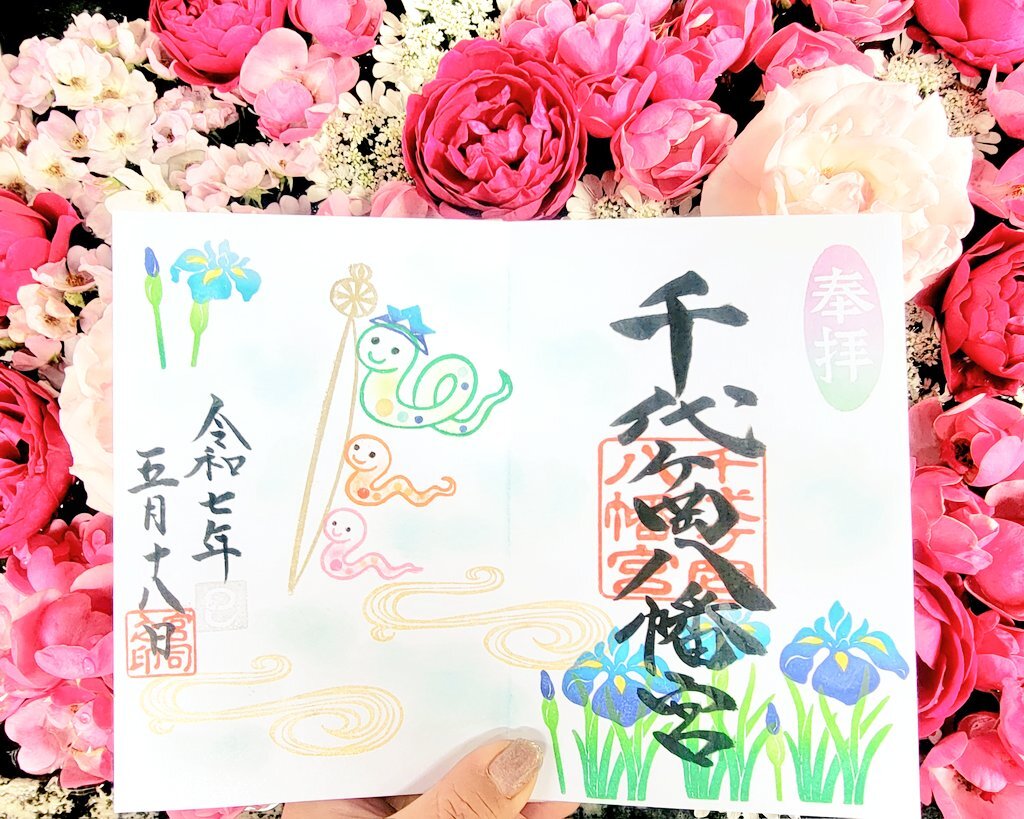 奉拝
千代ヶ岡八幡宮
千代ヶ岡
八幡宮
令和七年
五月十八日
宮司
之印